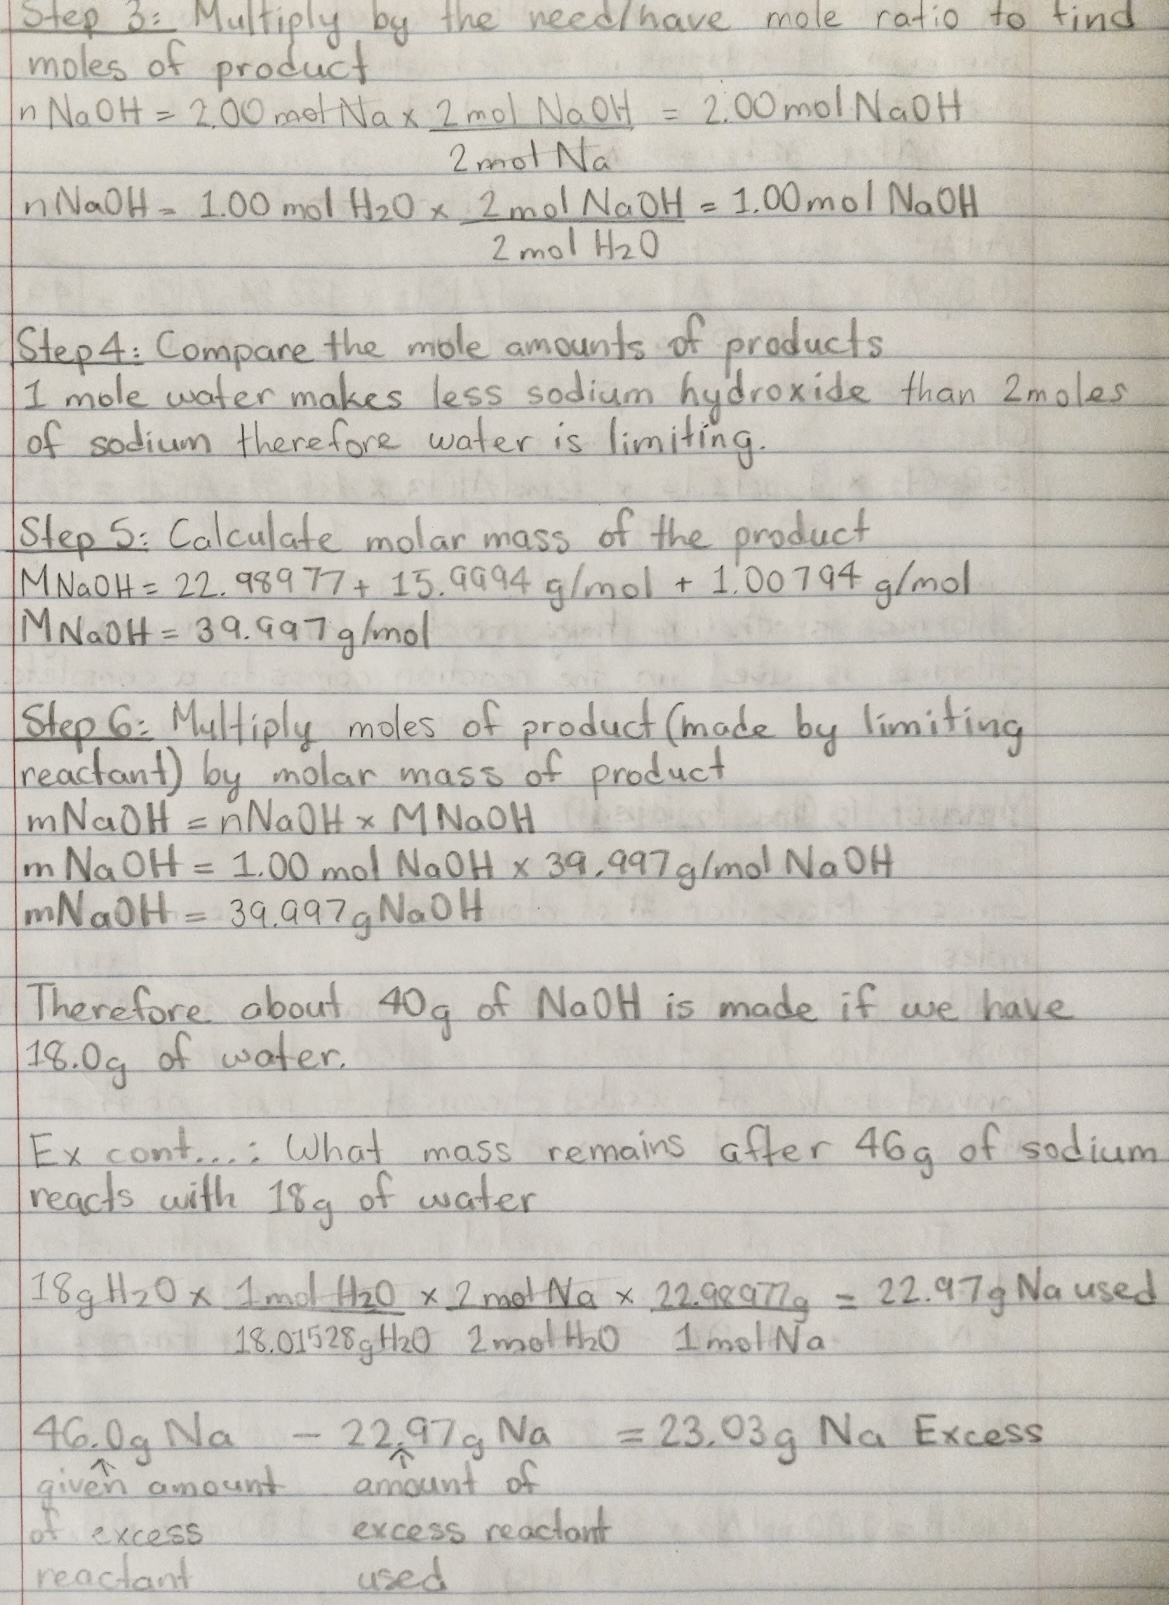 Step 3: Multiply by the need/have mole ratio to find
moles of product
nNaOH = 2.00 mol Na x 2 mol NaOH = 2.00 mol NaOH
2 mol Na
nNaOH = 1.00 mol H2O x 2 mol NaOH = 1.00 mol NaOH
2 mol H2O
Step 4: Compare the mole amounts of products
1 mole water makes less sodium hydroxide than 2 moles
of sodium therefore water is limiting.
Step 5: Calculate molar mass of the product
MNaOH = 22.98977 + 15.9994 g/mol + 1.00794 g/mol
MNaOH = 39.997 g/mol
Step 6: Multiply moles of product (made by limiting
reactant) by molar mass of product
mNaOH = nNaOH x MNaOH
mNaOH = 1.00 mol NaOH x 39.997 g/mol NaOH
mNaOH = 39.997 g NaOH
Therefore about 40g of NaOH is made if we have
18.0g of water.
Ex cont...: What mass remains after 46g of sodium
reacts with 18g of water
18g H2O x 1 mol H2O x 2 mol Na x 22.98977g = 22.97g Na used
18.01528g H2O 2 mol H2O 1 mol Na
46.0g Na - 22.97g Na = 23.03g Na Excess
↑ ↑
given amount amount of
of excess excess reactant
reactant used